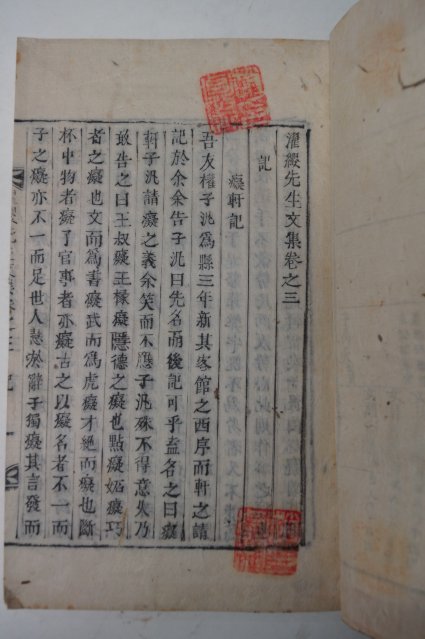 濯纓先生文集卷之三
記
癡軒記
吾友權子汎爲縣三年新其客館之西序而軒之請
記於余余告子汎曰先名而後記可乎盍名之曰癡
軒子汎請癡之義余笑而不應子汎殊不得意失乃
敢告之曰王叔癡王掾癡隱德之癡也點癡妬癡巧
者之癡也文而爲書癡武而爲虎癡才絶而癡也斷
杯中物者癡了官事者亦癡古之以癡名者不一而
子之癡亦不一而足世人慧於辭子獨癡其言發而